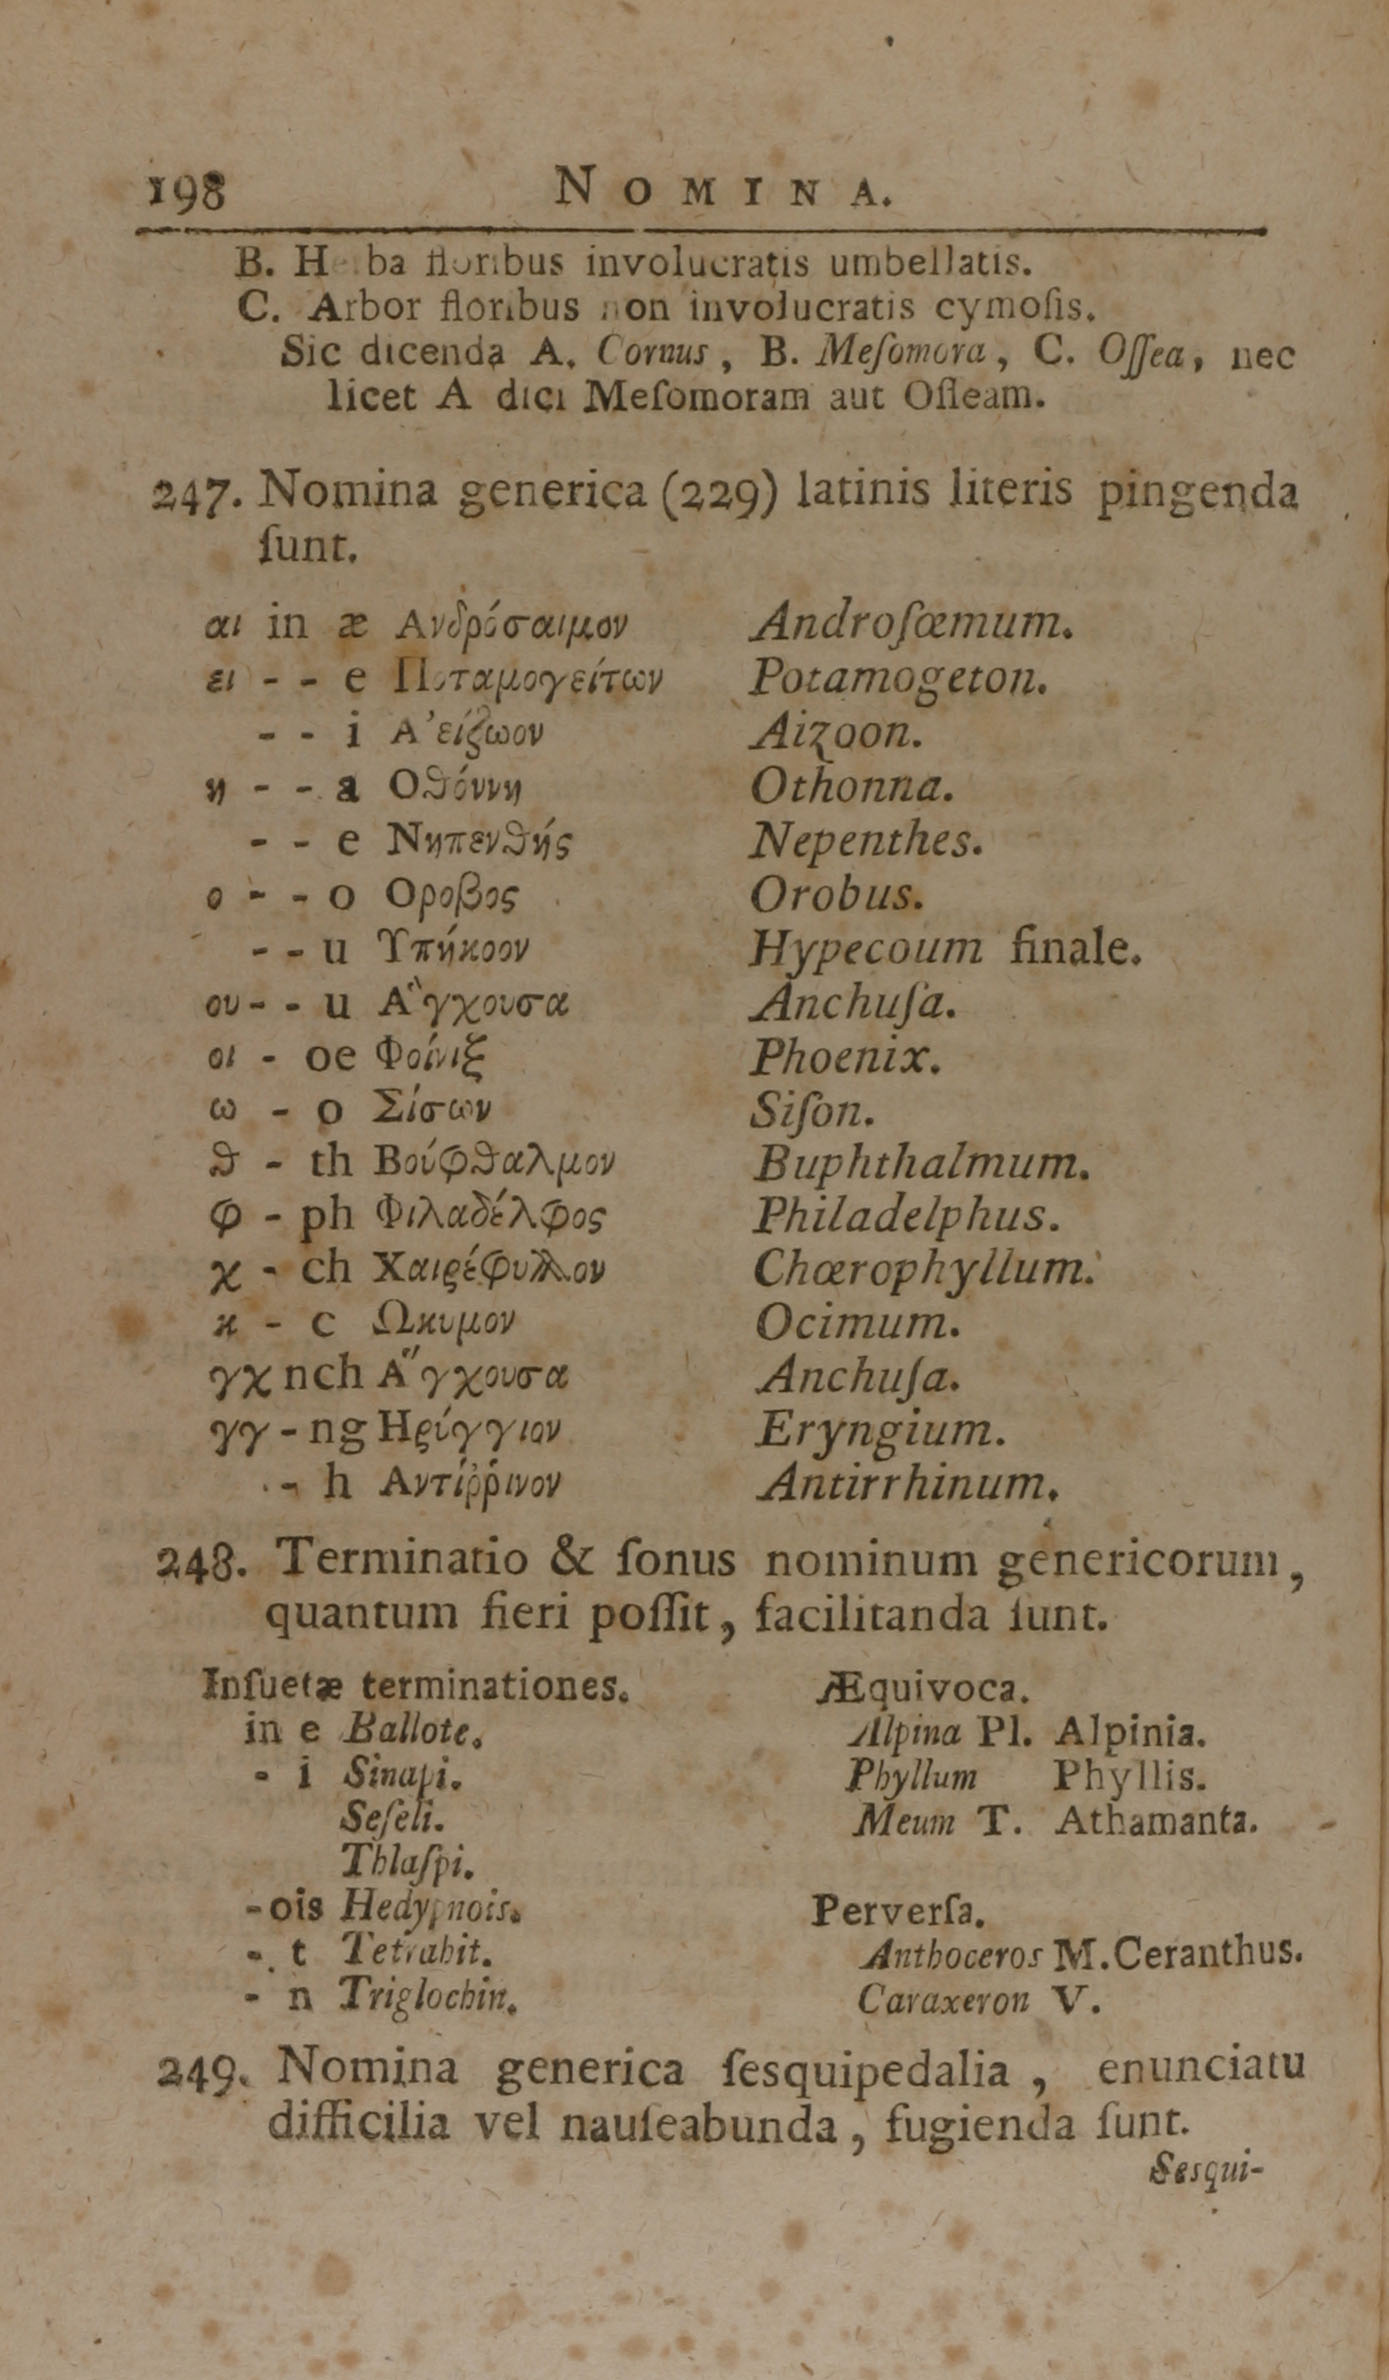 198 NOMINA.
B. Herba floribus involucratis umbellatis.
C. Arbor floribus non involucratis cymoſis.
Sic dicenda A. Cornus, B. Meſomora, C. Oſſea, nec
licet A dici Meſomoram aut Oſſeam.
247. Nomina generica (229) latinis literis pingenda
ſunt.
αι in æ Ανδρόσαιμον Androſœmum.
ει - - e Ποταμογείτων Potamogeton.
- - i Α'είζωον Aizoon.
η - - a Οϑόννη Othonna.
- - e Νηπενϑής Nepenthes.
ο - - o Οροβος Orobus.
- - u Υπήκοον Hypecoum finale.
ου - - u Α῎γχουσα Anchuſa.
οι - oe Φοίνιξ Phoenix.
ω - o Σίσων Siſon.
ϑ - th Βούφϑαλμον Buphthalmum.
φ - ph Φιλαδέλφος Philadelphus.
χ - ch Χαιρέφυλλον Chœrophyllum.
κ - c Ωκυμον Ocimum.
γχ nch Α῎γχουσα Anchuſa.
γγ - ng Ηρύγγιον Eryngium.
- h Αντίῤῥινον Antirrhinum.
248. Terminatio & ſonus nominum genericorum,
quantum fieri poſſit, facilitanda ſunt.
Inſuetæ terminationes. Æquivoca.
in e Ballote. Alpina Pl. Alpinia.
- i Sinapi. Phyllum Phyllis.
Seſeli. Meum T. Athamanta.
Thlaſpi.
- ois Hedypnois. Perverſa.
- t Tetrahit. Anthoceros M. Ceranthus.
- n Triglochin. Caraxeron V.
249. Nomina generica ſesquipedalia, enunciatu
difficilia vel nauſeabunda, fugienda ſunt.
Sesqui-